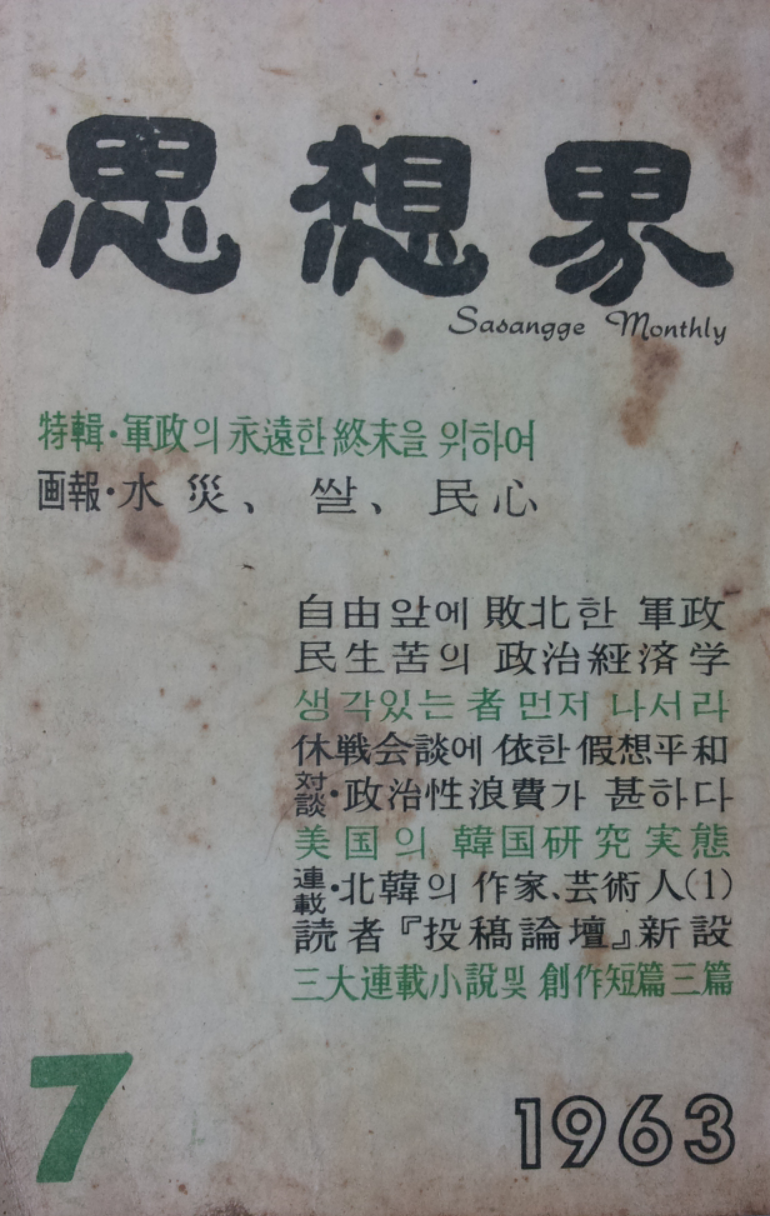 思想界
Sasangge Monthly
特輯·軍政의 永遠한 終末을 위하여
画報·水災、쌀、民心
自由앞에 敗北한 軍政
民生苦의 政治経済学
생각있는 者 먼저 나서라
休戦会談에 依한 假想平和
対談·政治性浪費가 甚하다
美国의 韓国研究実態
連載·北韓의 作家、芸術人(1)
読者『投稿論壇』新設
三大連載小說및 創作短篇三篇
7
1963